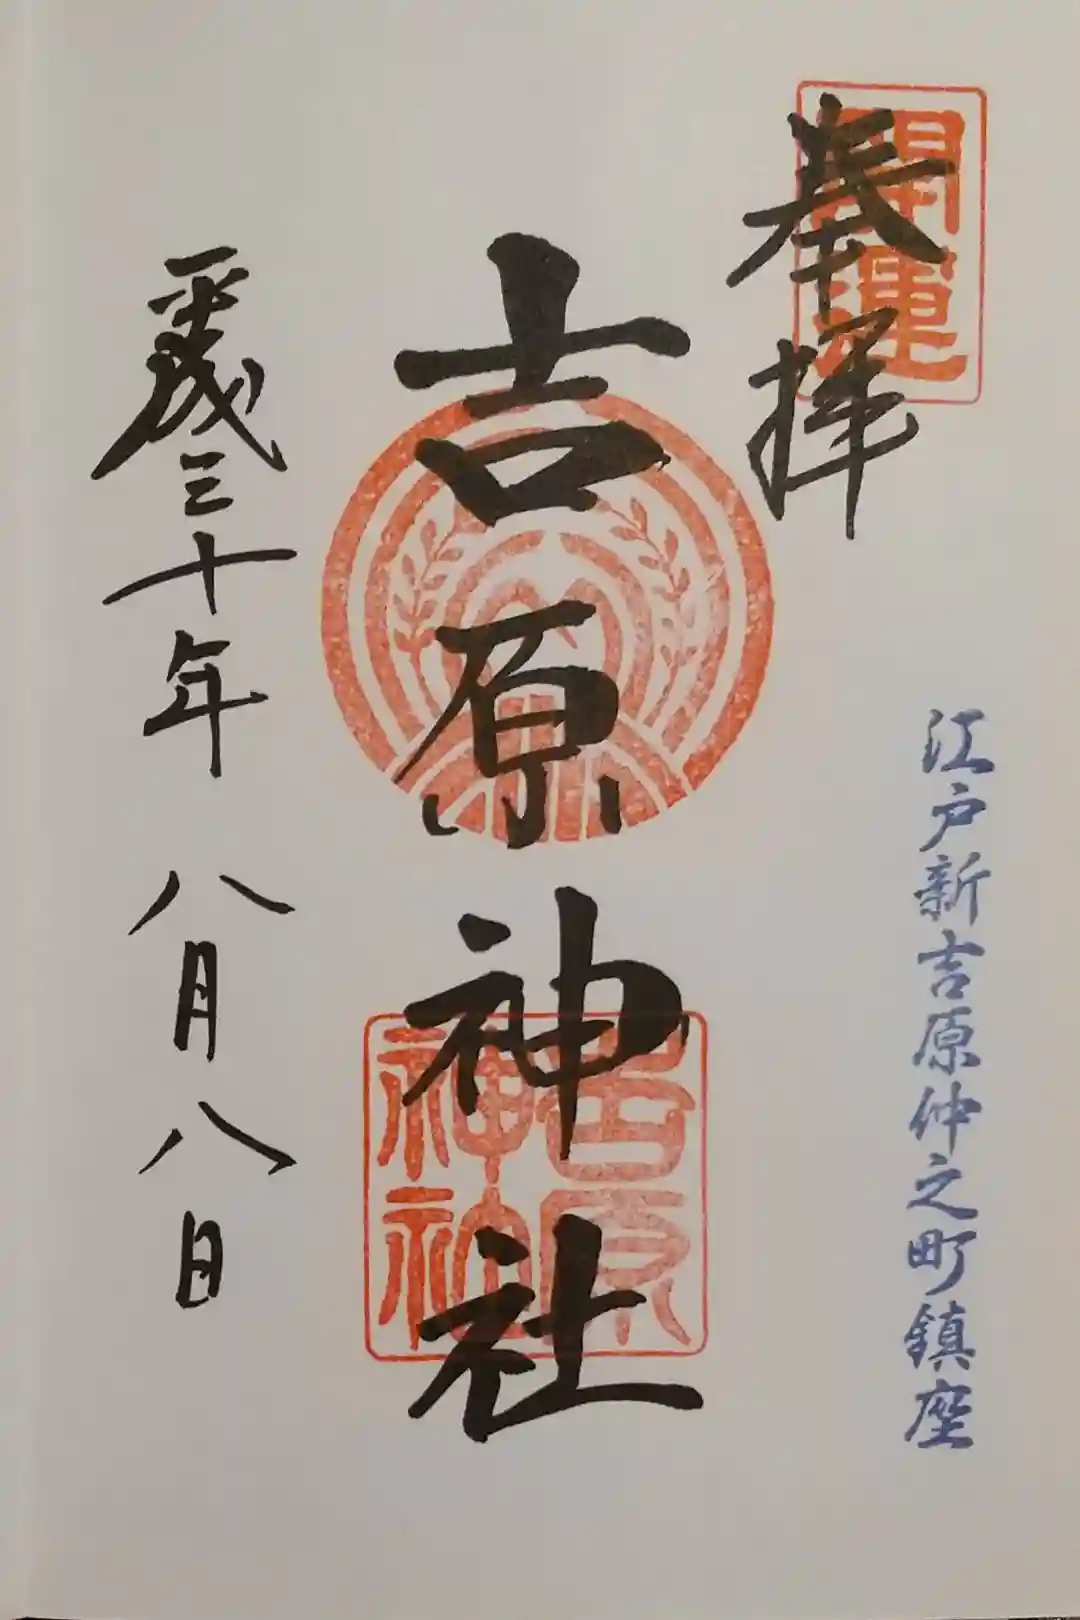 開運
奉拝
江戸新吉原仲之町鎮座
吉原神社
吉原
神社
平成三十年八月八日